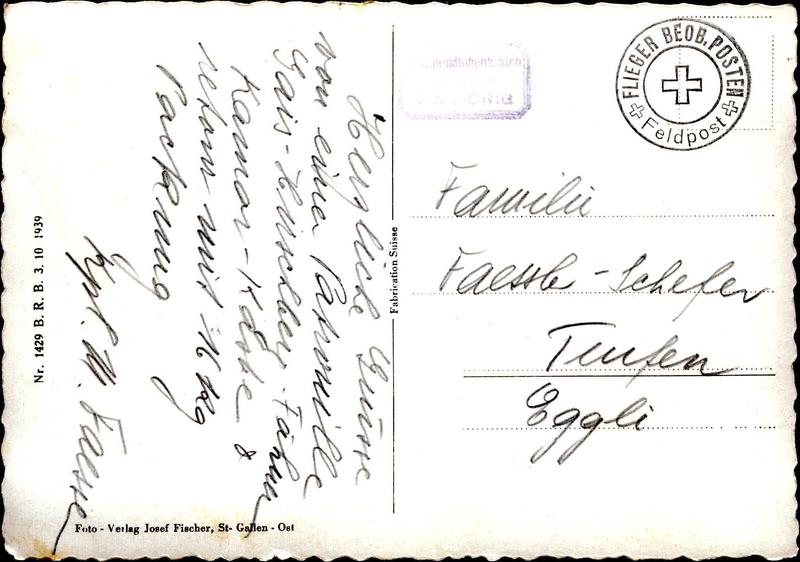 Herzliche Grüsse
von einer Patrouille
Gais - Hirschberg - Fähnern
Kamor - Kasse &
retour mit 16 kg
Packung
Kpl. W. Faessle
Nr. 1429 B. R. B. 3. 10 1939
Foto - Verlag Josef Fischer, St- Gallen - Ost
Fabrication Suisse
FLIEGER BEOB. POSTEN
Feldpost
Familie
Faessle - Schefer
Teufen
Eggli